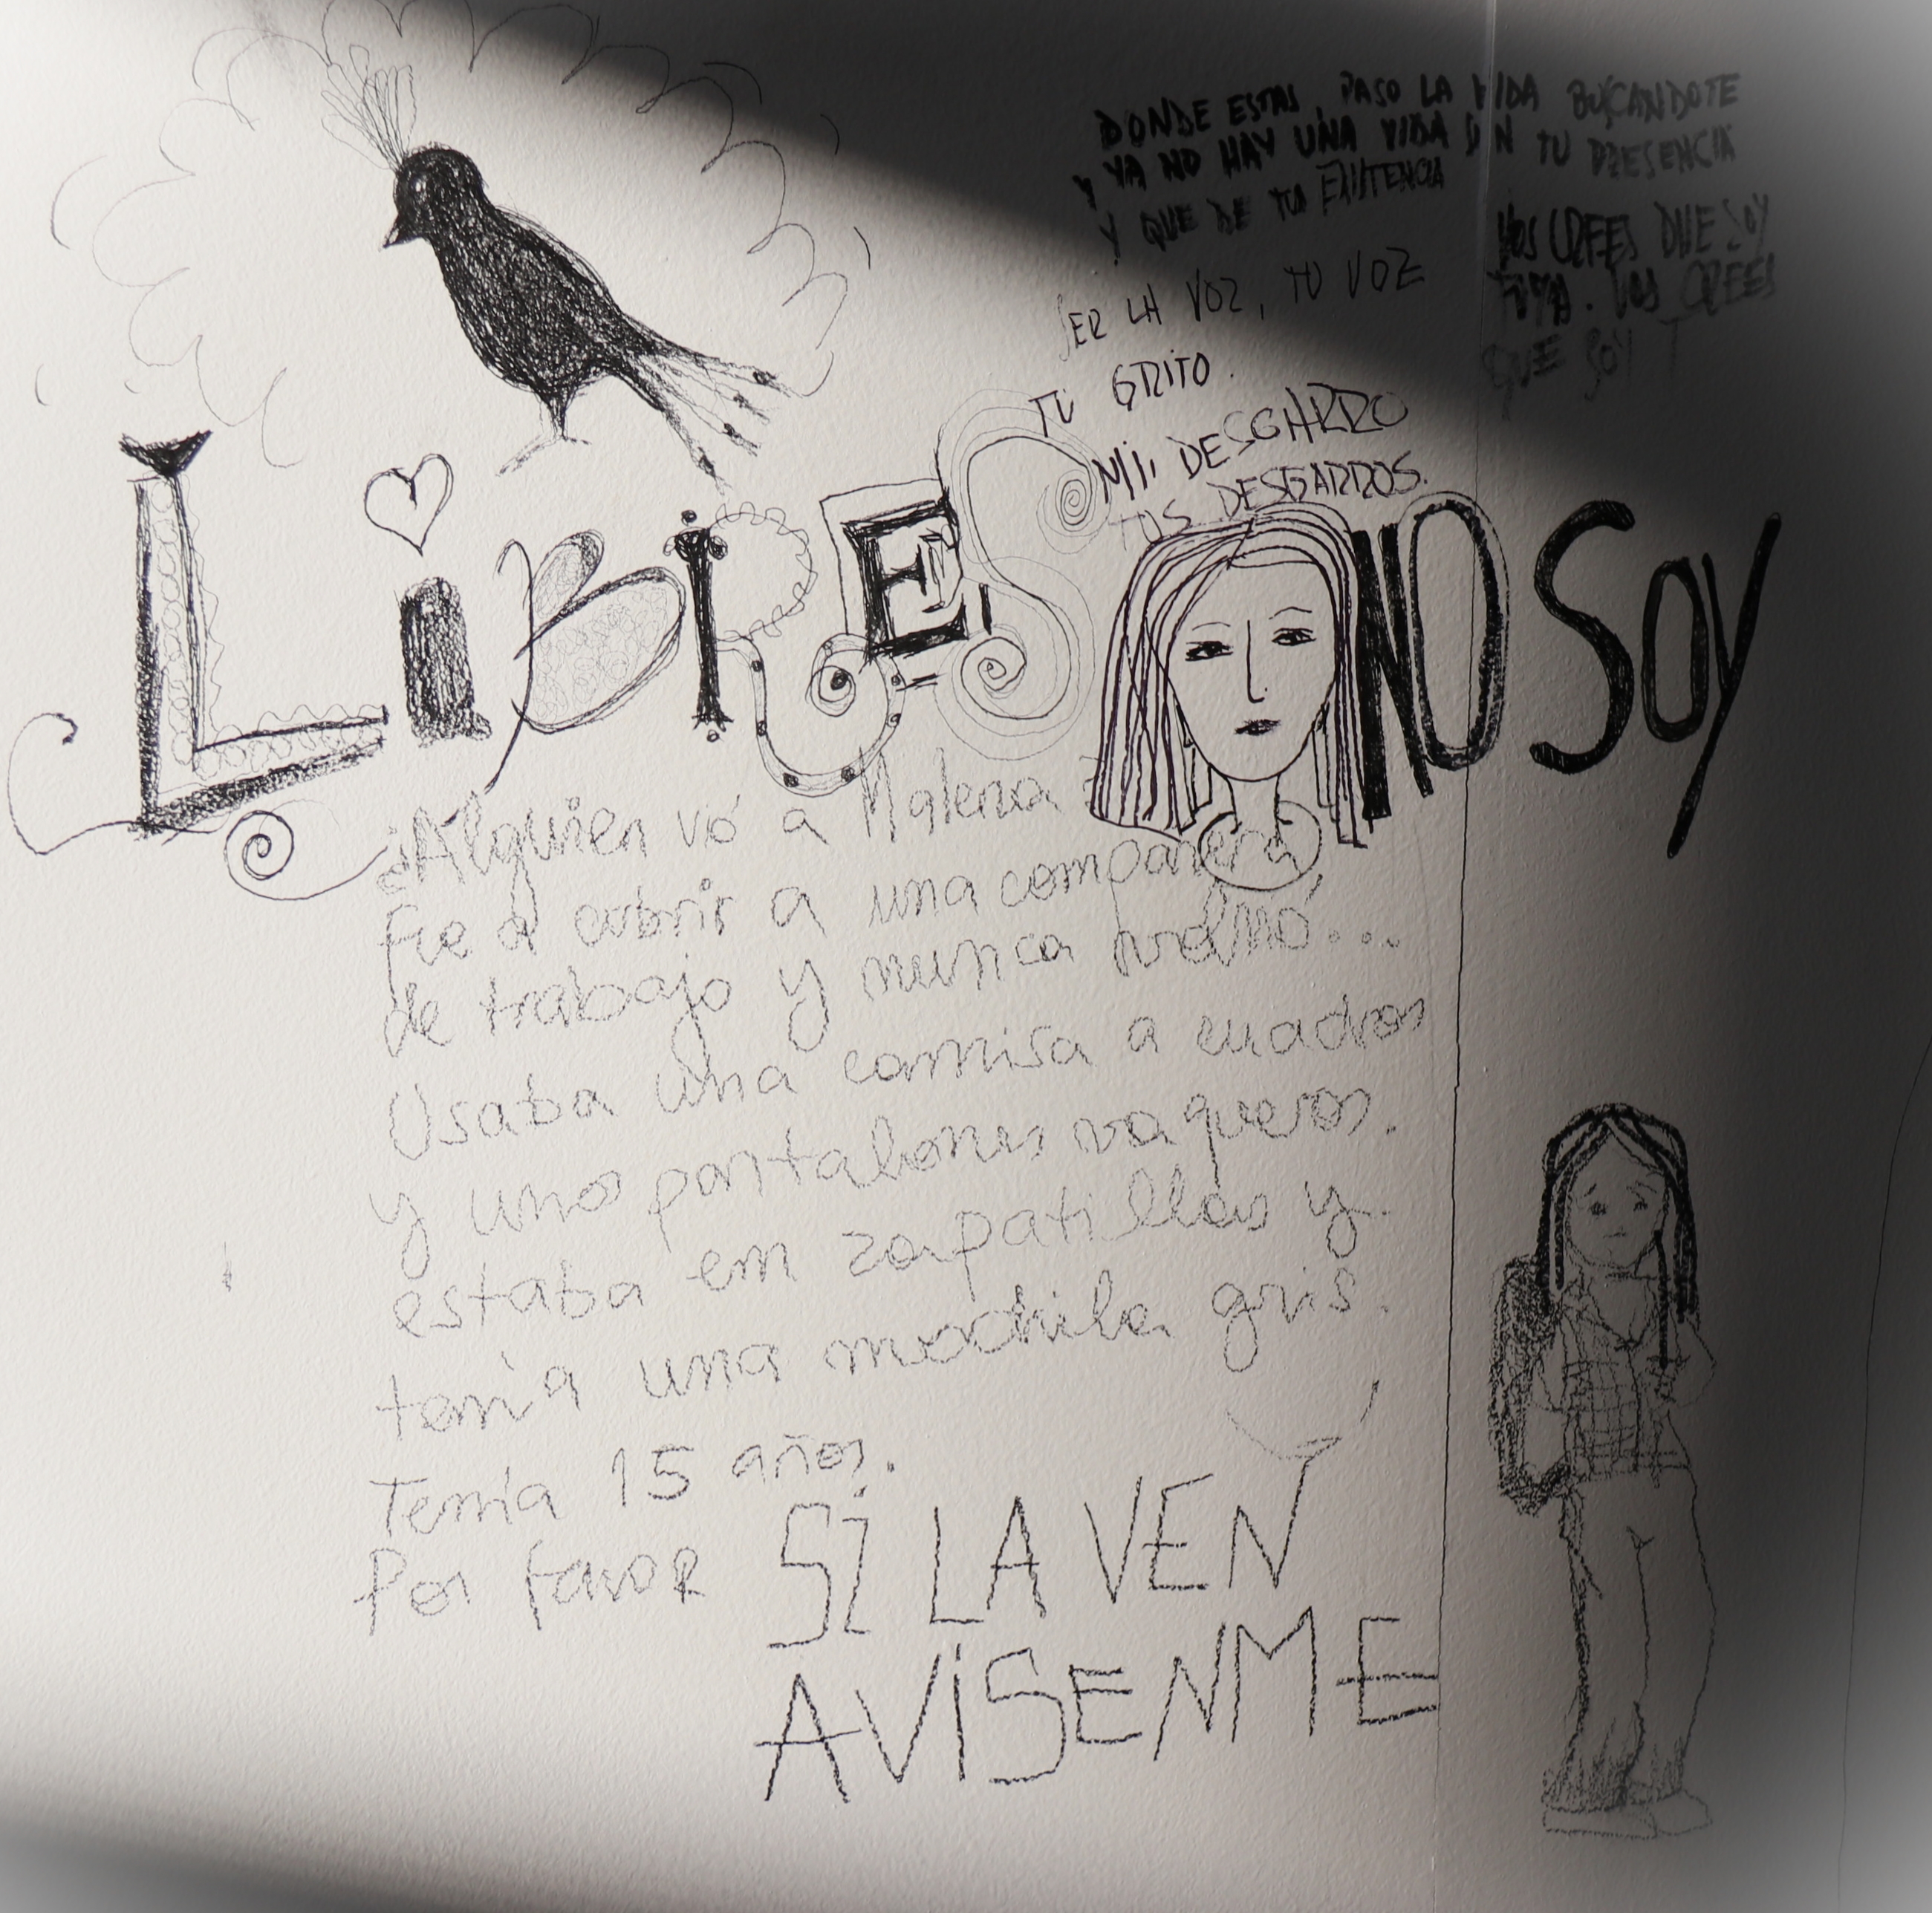 DONDE ESTAS, PASO LA VIDA BUSCANDOTE
Y YA NO HAY UNA VIDA SIN TU PRESENCIA
Y QUE DE TU EXISTENCIA
SER LA VOZ, TU VOZ
TU GRITO.
MI DESGARRO
TUS DESGARROS.
VOS CREES QUE SOY
TUYA. VOS CREES
QUE SOY T
LiBRES NO SOY
¿Alguien vió a Malena ?
Fue a cubrir a una compañera
de trabajo y nunca volvió...
Usaba una camisa a cuadros
y unos pantalones vaqueros.
estaba en zapatillas y
tenía una mochila gris.
Tenía 15 años.
Por favor SI LA VEN
AViSENME